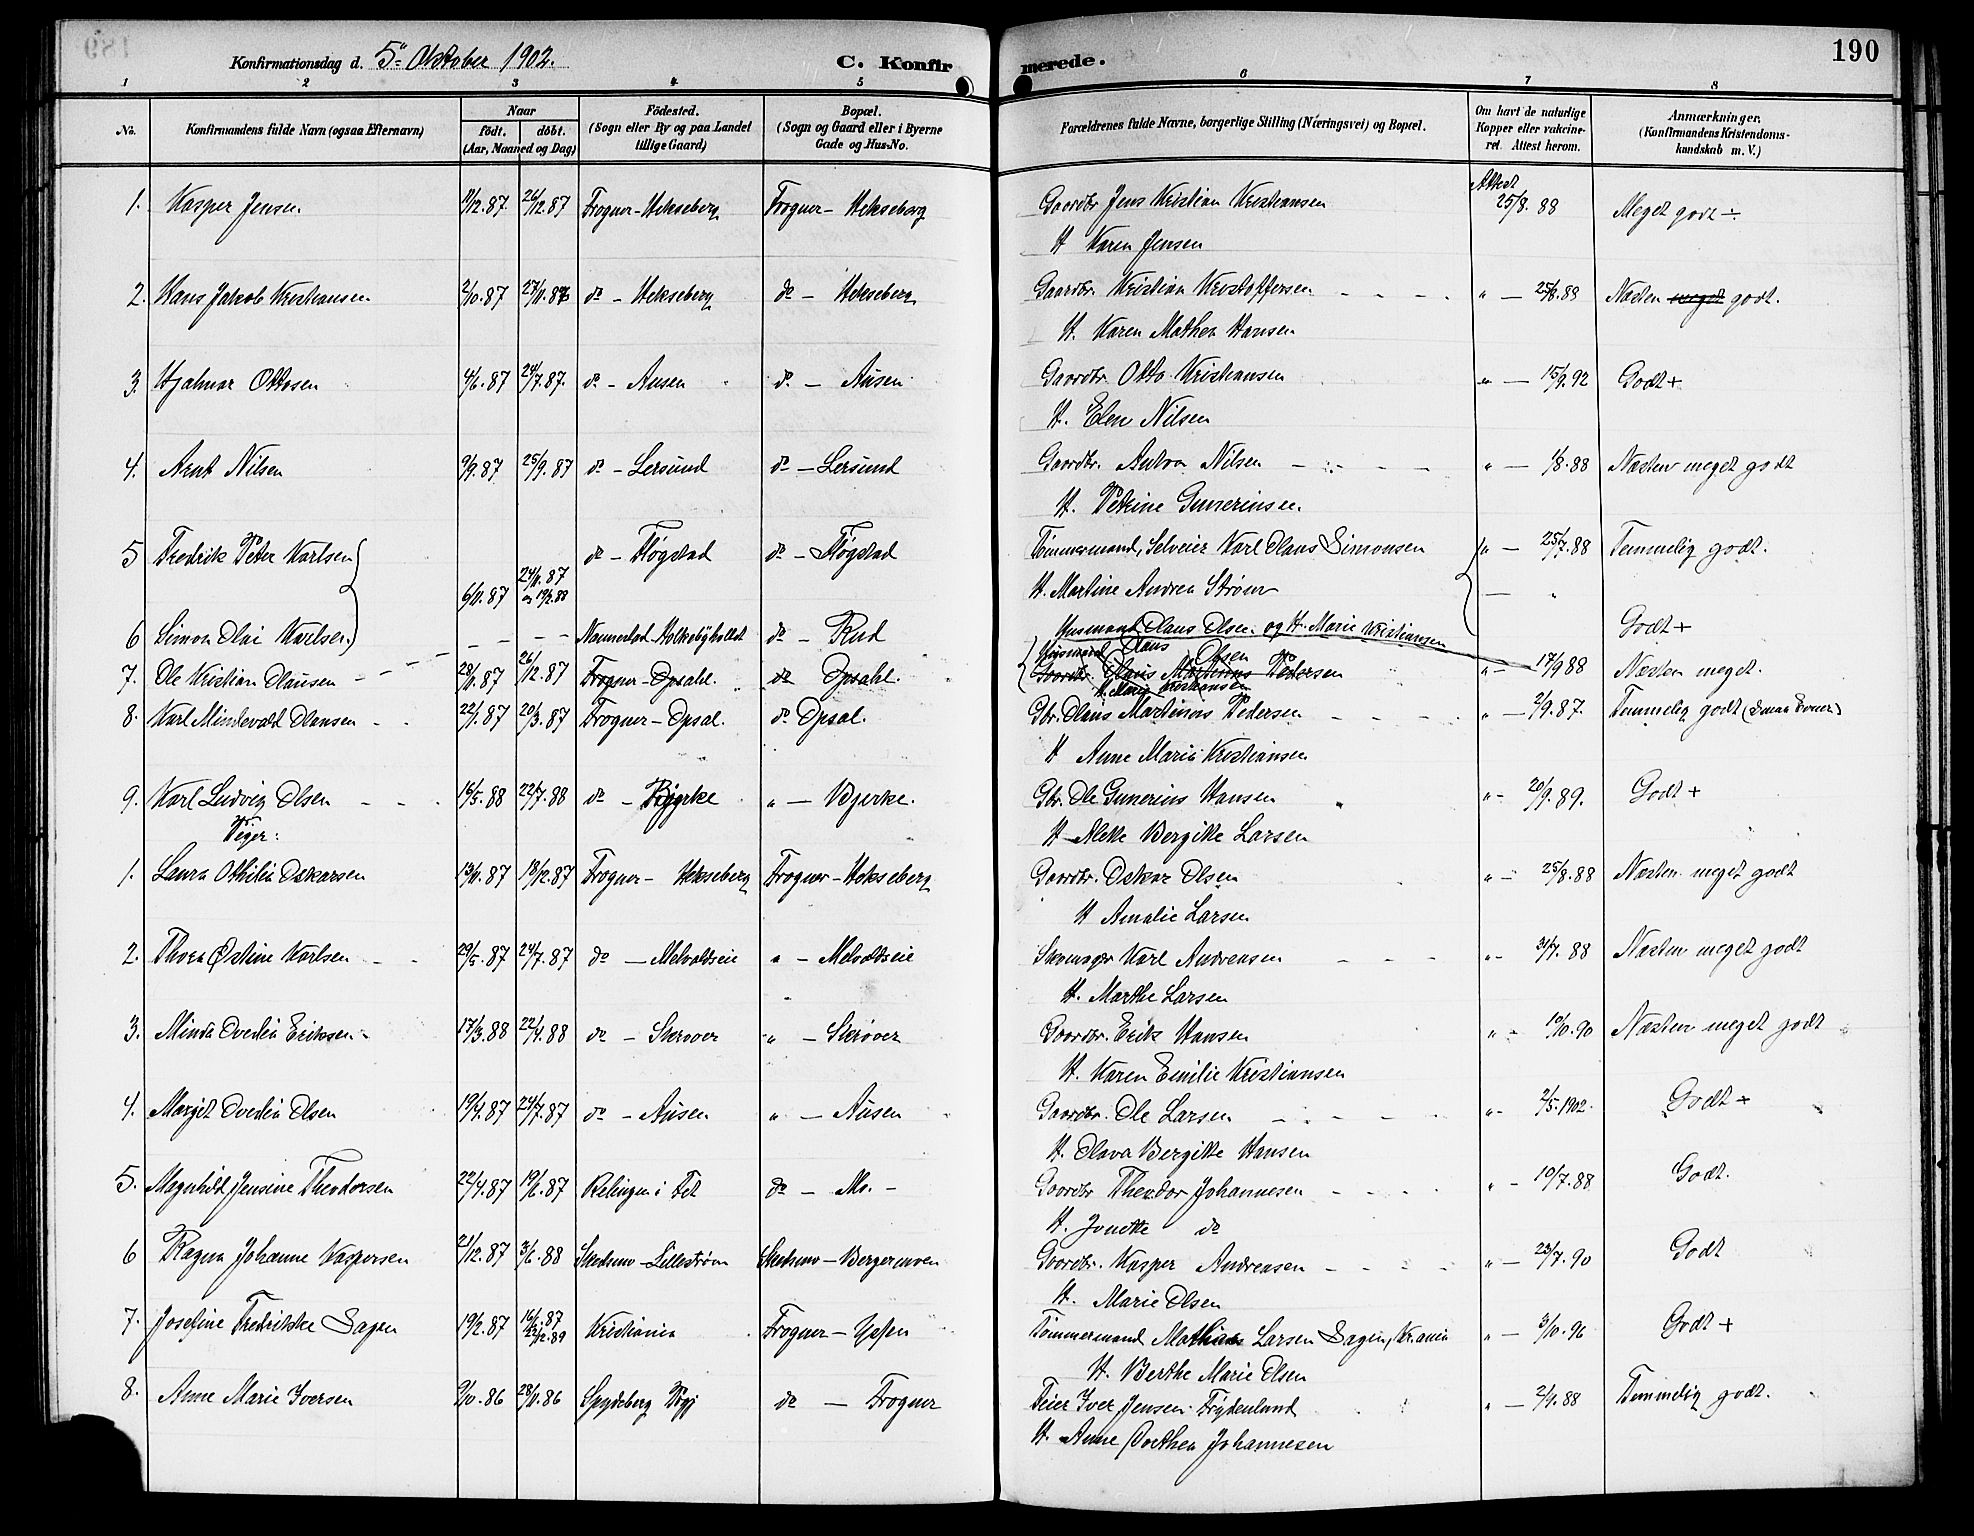 190
Konfirmationsdag d. 5te Oktober 1902.
C. Konfirmerede.
1 2 3 4 5 6 7 8
No.
Konfirmandens fulde Navn (ogsaa Efternavn)
Naar
födt. döbt.
(Aar, Maaned og Dag)
Födested.
(Sogn eller By og paa Landet
tillige Gaard)
Bopæl.
(Sogn og Gaard eller i Byerne
Gade og Hus-No.
Forældrenes fulde Navne, borgerlige Stilling (Næringsvei) og Bopæl.
Om havt de naturlige
Kopper eller vakcine-
ret. Attest herom.
Anmærkninger.
(Konfirmandens Kristendoms-
kundskab m. V.)
1. Kasper Jensen 11/12.87 26/12.87 Frogner-Hekseberg Frogner-Hekseberg Gaardbr Jens Kristian Kristiansen Attest 25/8.88 Meget godt ÷
H Karen Jensen
2. Hans Jakob Kristiansen 2/10.87 27/11.87 do - Hekseberg do - Hekseberg Gaardbr. Kristian Kristoffersen " - 25/8.88 Næsten meget godt.
H. Karen Mathea Hansen
3. Hjalmar Ottosen 4/6.87 24/7.87. do - Ausen do. - Ausen Gaardbr. Otto Kristiansen " - 15/9.92 Godt +
H. Elen Nilsen
4. Arnt Nilsen 9/9.87 25/9.87 do - Lersund do - Lersund Gaardbr. Anton Nilsen " - 1/8.88 Næsten meget godt
H. Petrine Gunerinsen
5 Fredrik Peter Karlsen 6/11.87 24/11.87 og 19/2.88 do - Fløgstad do - Fløgstad Tømmermand, Selveier Karl Olaus Simonsen " - 25/7.88 Temmelig godt.
H. Martine Andrea Strøm - "
6 Simon Olai Karlsen - - - Nannestad Holkebyholdt do - Rud Godt +
Husmand Olaus Olsen og H. Marie Kristiansen
7. Ole Kristian Olausen 28/11.87 26/12.87 Frogner-Opsahl. do Opsahl. Husmand Olaus Olsen
Gaardbr. Olaus Martinius Pedersen " - 17/9 88 Næsten meget.
H. Marie Kristiansen
8. Karl Mindevald Olausen 22/1.87 20/3.87 Frogner-Opsal. do Opsal. Gbr. Olaus Martinius Pedersen " - 2/9.87. Temmelig godt (Smaa Evner)
H Anne Marie Kristiansen
9. Karl Ludvig Olsen 16/5.88 22/7.88 do - Bjerke " - Bjerke. Gbr. Ole Gunerius Hansen " - 20/9.89. Godt +
H Alette Bergitte Larsen
Piger:
1. Laura Othilia Oskarsen 13/11.87 18/12.87 Frogner- Hekseberg Frogner-Hekseberg Gaardbr. Oskar Olsen " - 25/8.88 Næsten meget godt
H Amalie Larsen
2. Thora Østine Karlsen 29/5.87 24/7.87 do - Melvoldseie " - Melvoldseie Skomager Karl Andreasen " - 31/7.88 Næsten meget godt
H. Marthe Larsen
3. Minda Ovedia Eriksen 17/3.88 22/4.88 do - Skrøver " - Skrøver Gaardbr. Erik Hansen " - 10/10.90 Næsten meget godt
H. Karen Emilie Kristiansen
4. Margit Ovedia Olsen 19/4.87 24/7.87 do - Ausen " - Ausen Gaardbr. Ole Larsen " - 2/5.1902. Godt +
H. Olava Bergitte Hansen
5. Magnhild Jensine Theodorsen 22/4.87 19/6.87 Relingen i Fet do - Mo. - Gaardbr Theodor Johannesen " - 10/7.88 Godt.
H. Jonette do
6 Ragna Johanne Kaspersen 21/12.87 3/6.88 Skedsmo-Lillestrøm Skedsmo-Bergermoen Gaardbr. Kasper Andreasen " - 23/7.90 Godt
H. Marie Olsen
7. Josefine Fredrikke Sagen 19/2.87 Kristiania Frogner- Tømmermand Mathias Larsen Sagen, Kr.ania " - 3/10.96 Godt +
H. Berthe Marie Olsen
8. Anne Marie Iversen 9/10.86 28/11.86 Spydeberg do - Frogner Feier Iver Jensen Frydenlund " - 2/9.88 Temmelig godt.
H. Anne Dorthea Johannesen